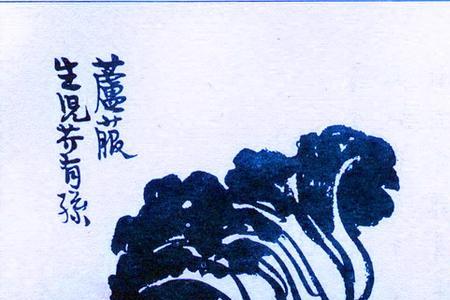 蘆菔
生兒芥有孫